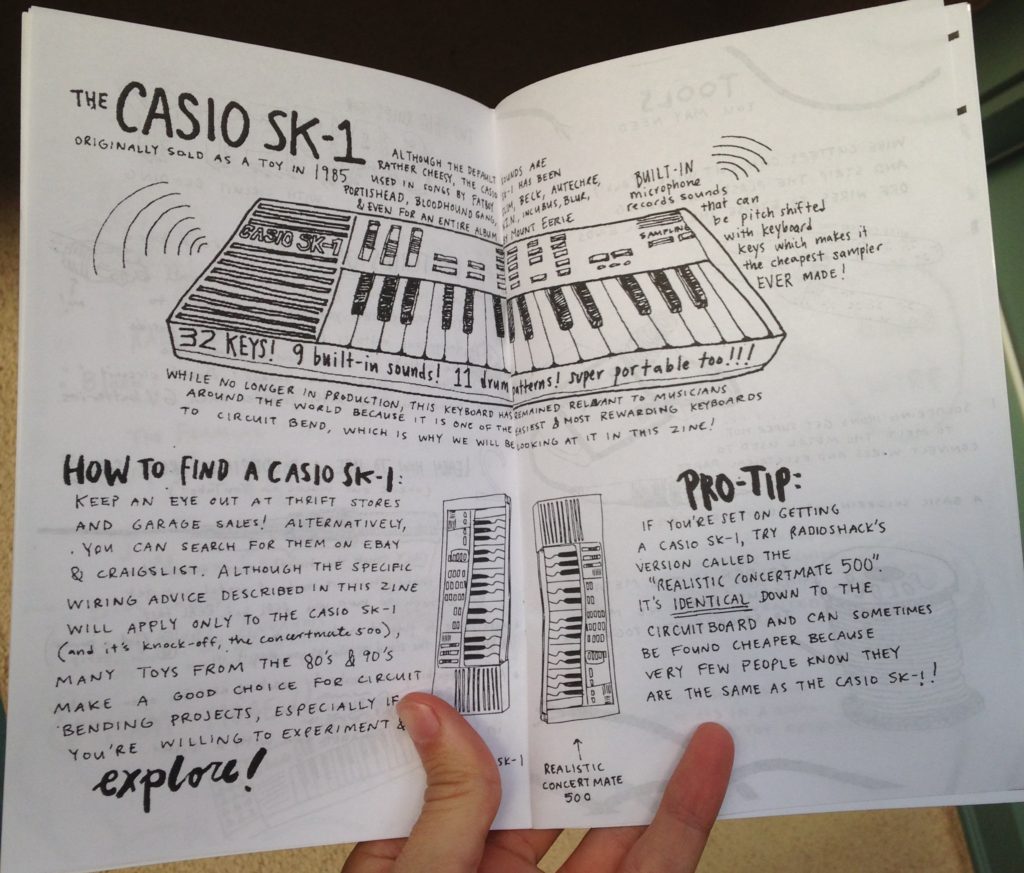 THE CASIO SK-1
ORIGINALLY SOLD AS A TOY IN 1985
ALTHOUGH THE DEFAULT SOUNDS ARE
RATHER CHEESY, THE CASIO SK-1 HAS BEEN
USED IN SONGS BY FATBOY SLIM, BECK, AUTECHRE,
PORTISHEAD, BLOODHOUND GANG, INCUBUS, BLUR,
& EVEN FOR AN ENTIRE ALBUM BY MOUNT EERIE
BUILT-IN
microphone
records sounds
that can
be pitch shifted
with keyboard
keys which makes it
the cheapest sampler
EVER MADE!
CASIO SK-1
SAMPLING
32 KEYS! 9 built-in sounds! 11 drum patterns! super portable too!!!
WHILE NO LONGER IN PRODUCTION, THIS KEYBOARD HAS REMAINED RELEVANT TO MUSICIANS
AROUND THE WORLD BECAUSE IT IS ONE OF THE EASIEST & MOST REWARDING KEYBOARDS
TO CIRCUIT BEND, WHICH IS WHY WE WILL BE LOOKING AT IT IN THIS ZINE!
HOW TO FIND A CASIO SK-1:
KEEP AN EYE OUT AT THRIFT STORES
AND GARAGE SALES! ALTERNATIVELY,
YOU CAN SEARCH FOR THEM ON EBAY
& CRAIGSLIST. ALTHOUGH THE SPECIFIC
WIRING ADVICE DESCRIBED IN THIS ZINE
WILL APPLY ONLY TO THE CASIO SK-1
(and it's knock-off, the concertmate 500),
MANY TOYS FROM THE 80's & 90's
MAKE A GOOD CHOICE FOR CIRCUIT
BENDING PROJECTS, ESPECIALLY IF
YOU'RE WILLING TO EXPERIMENT &
explore!
SK-1
PRO-TIP:
IF YOU'RE SET ON GETTING
A CASIO SK-1, TRY RADIOSHACK'S
VERSION CALLED THE
"REALISTIC CONCERTMATE 500".
IT'S IDENTICAL DOWN TO THE
CIRCUITBOARD AND CAN SOMETIMES
BE FOUND CHEAPER BECAUSE
VERY FEW PEOPLE KNOW THEY
ARE THE SAME AS THE CASIO SK-1!!
REALISTIC
CONCERTMATE
500